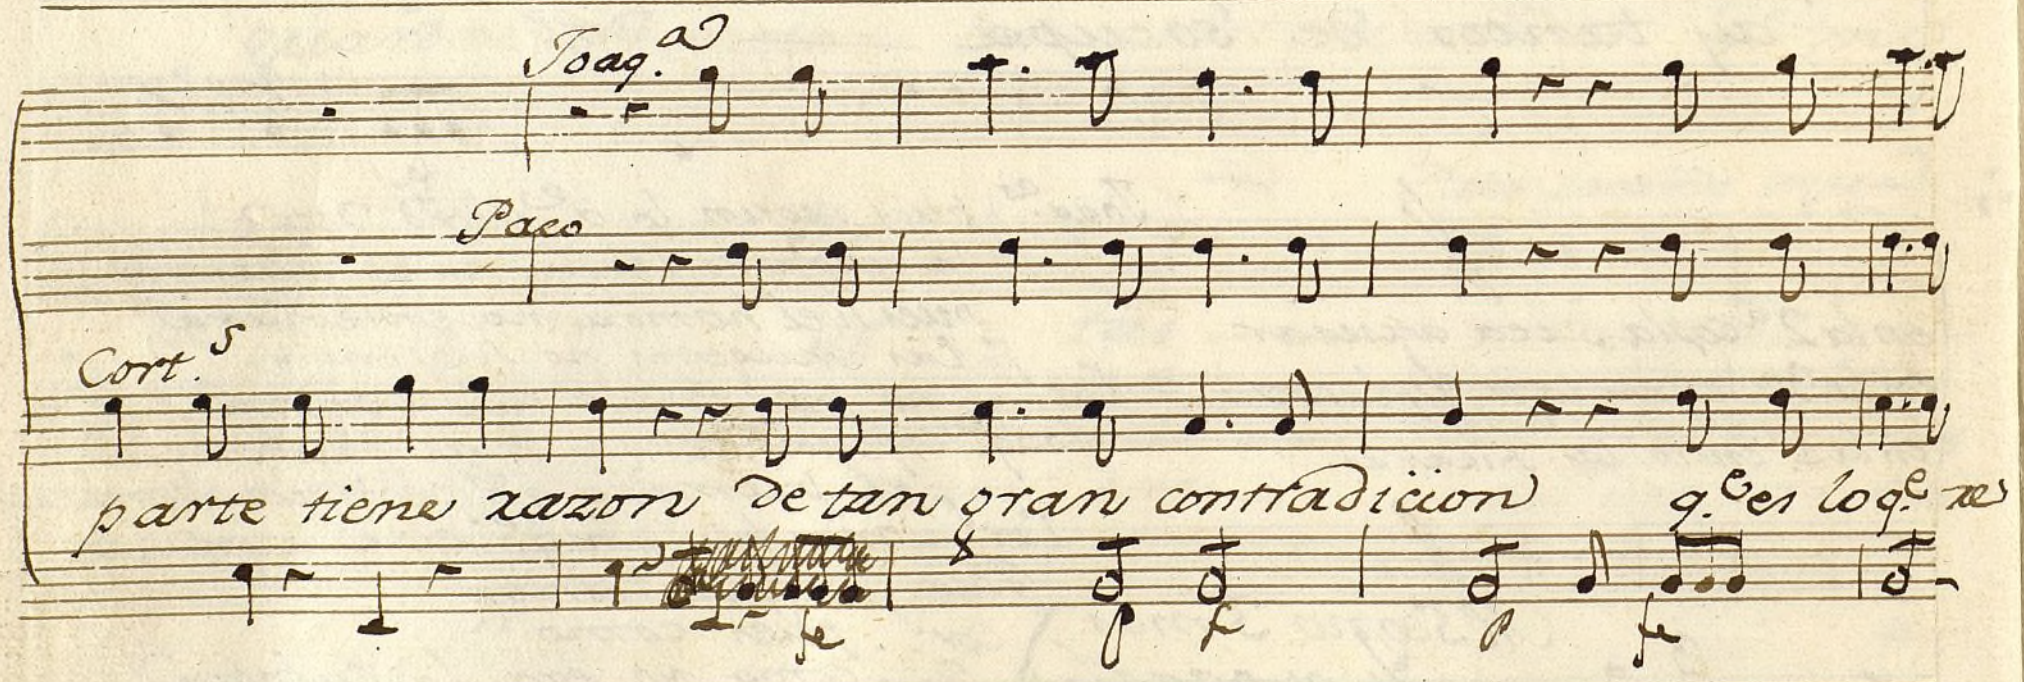 Joaq.ª
Paco
Cort.s
parte tiene razon de tan gran contradicion q.e es lo q.e re
fe p f p fe